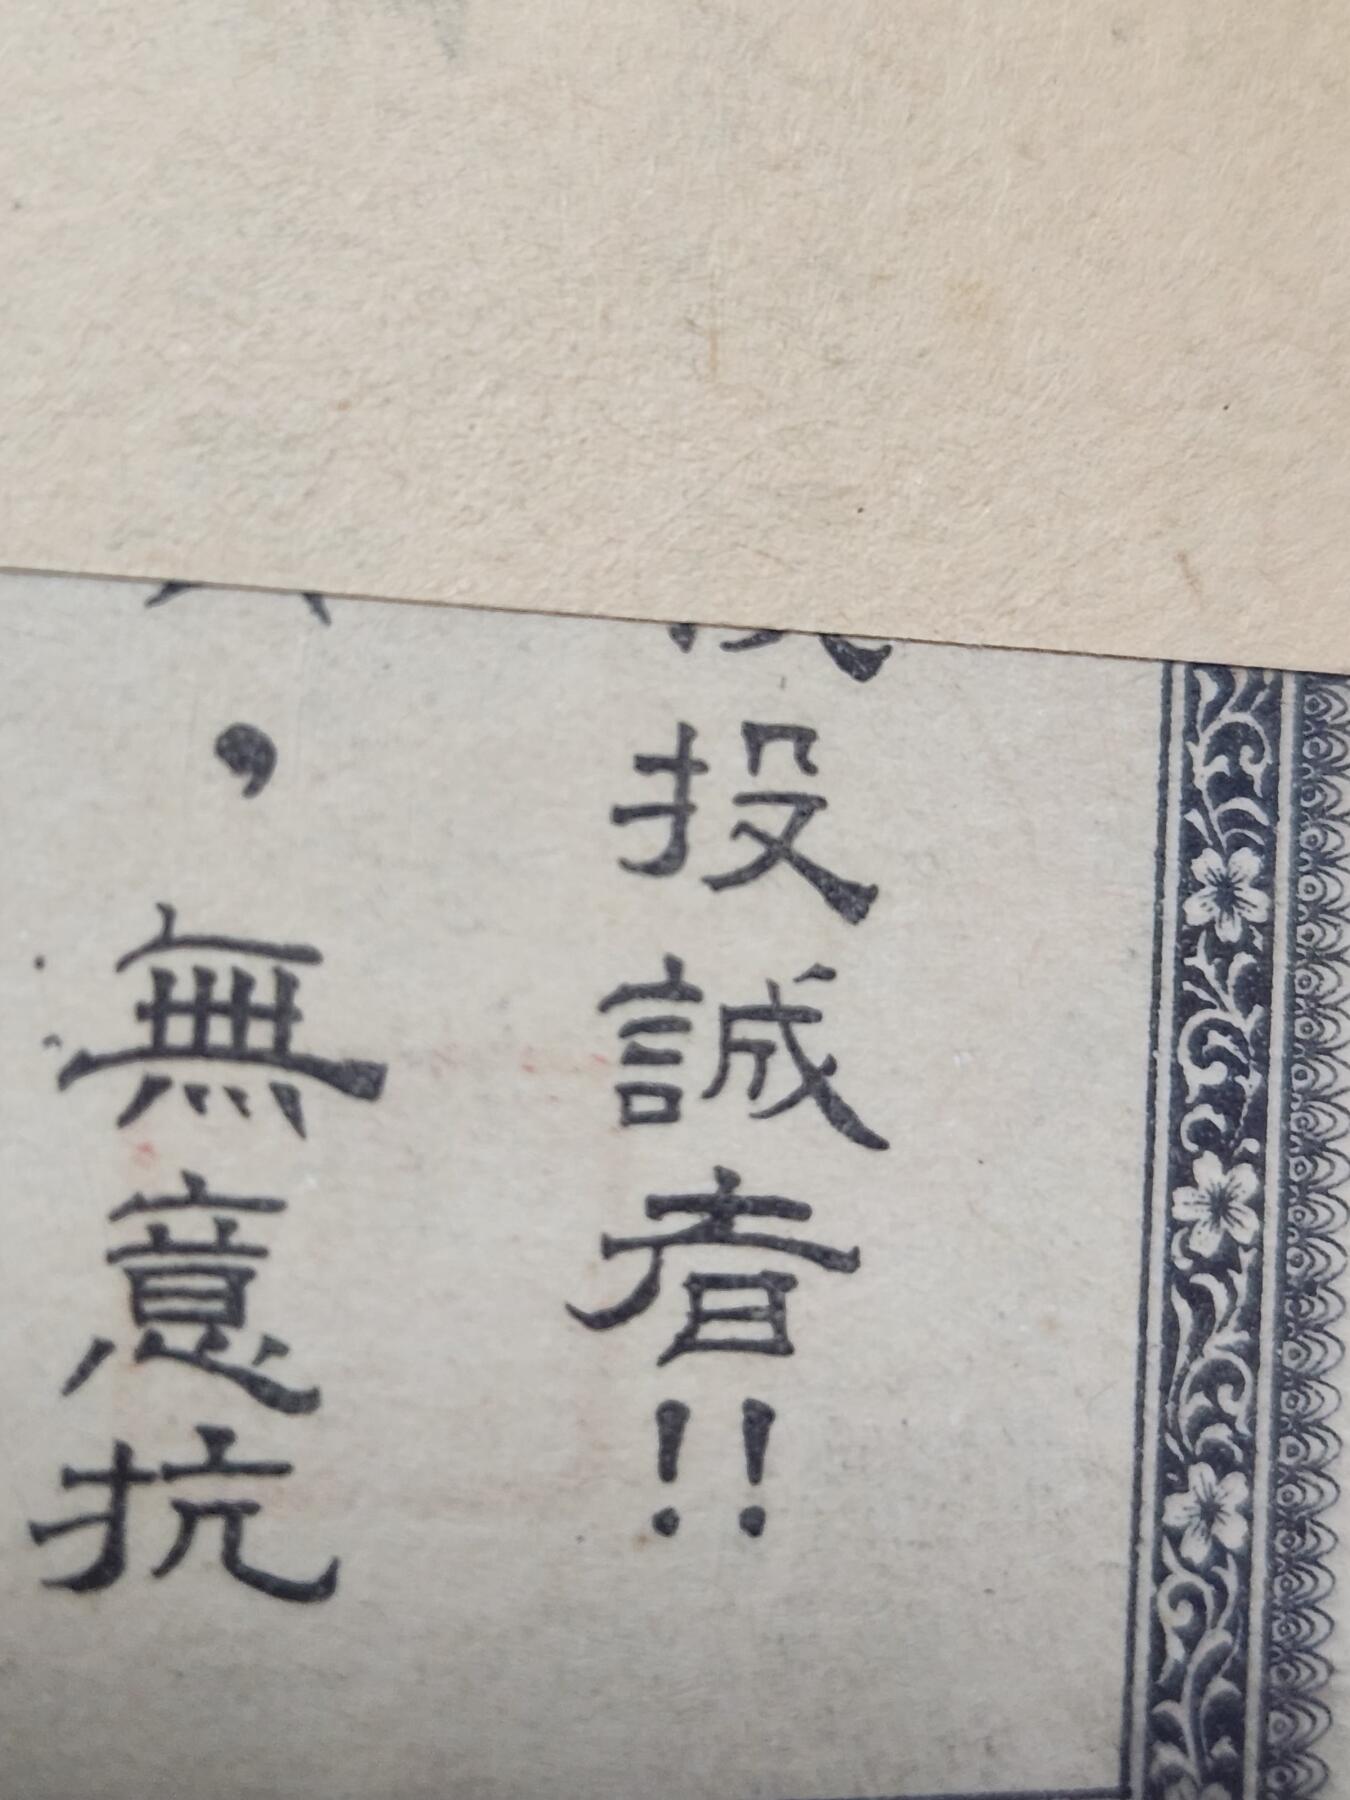 投誠者!!
，無意抗